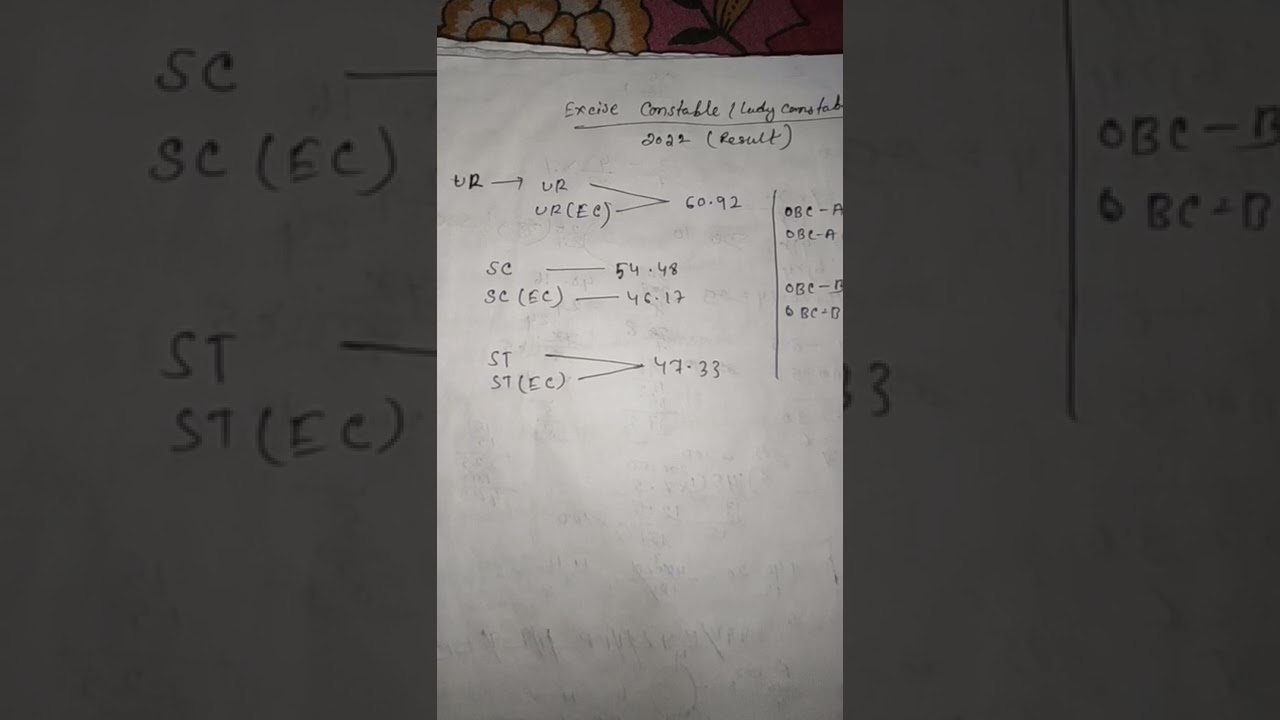 Excise Constable / Lady Constab
2022 (Result)
UR → UR
UR (EC)
60.92
SC — 54.48
SC (EC) — 46.17
ST
ST (EC)
47.33
OBC-A
OBC-A
OBC-B
OBC-B
SC
SC (EC)
ST
ST (EC)
33
OBC-B
OBC-B